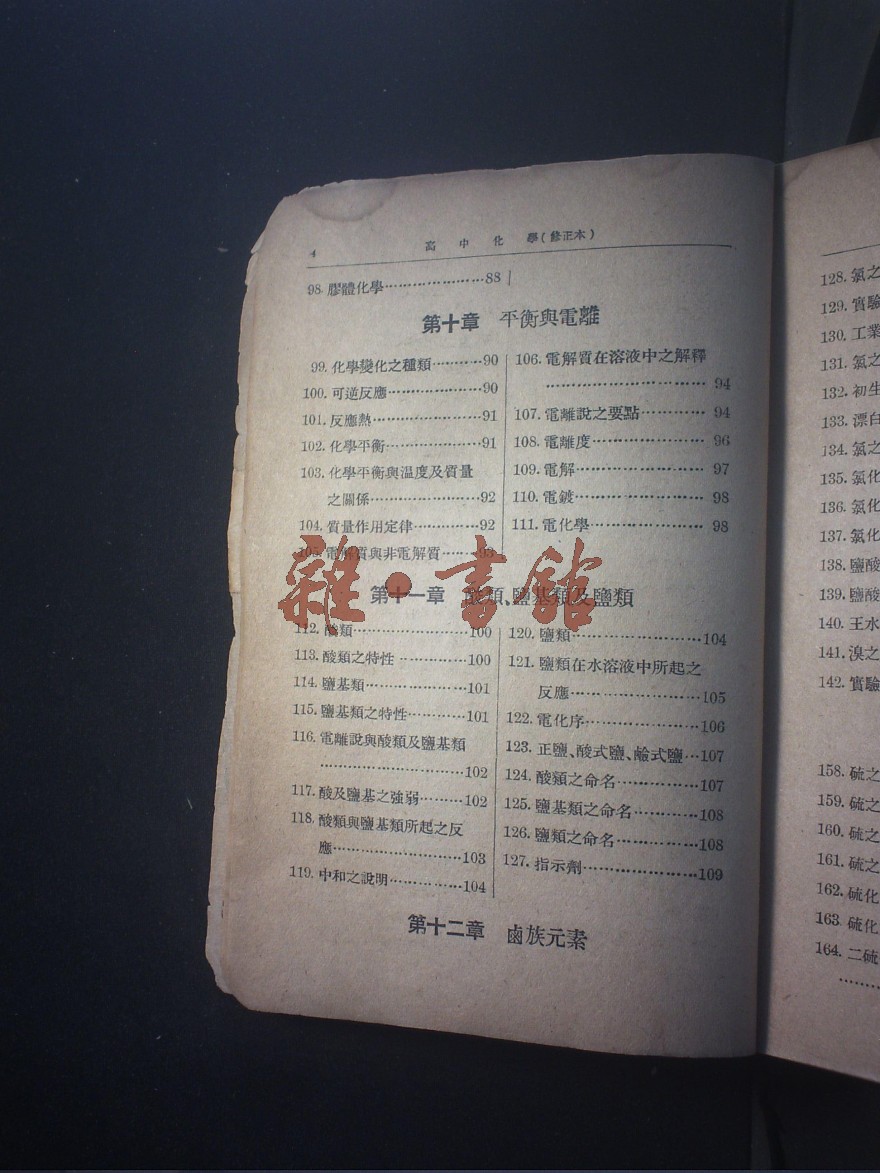 4
高中化學(修正本)
98. 膠體化學…………………88
第十章 平衡與電離
99. 化學變化之種類…………90
100. 可逆反應…………………90
101. 反應熱……………………91
102. 化學平衡…………………91
103. 化學平衡與溫度及質量
之關係……………………92
104. 質量作用定律……………92
105. 電解質與非電解質………93
106. 電解質在溶液中之解釋
……………………………94
107. 電離說之要點……………94
108. 電離度……………………96
109. 電解………………………97
110. 電鍍………………………98
111. 電化學……………………98
第十一章 酸類、鹽基類及鹽類
112. 酸類………………………100
113. 酸類之特性………………100
114. 鹽基類……………………101
115. 鹽基類之特性……………101
116. 電離說與酸類及鹽基類
……………………………102
117. 酸及鹽基之強弱…………102
118. 酸類與鹽基類所起之反
應…………………………103
119. 中和之說明………………104
120. 鹽類………………………104
121. 鹽類在水溶液中所起之
反應………………………105
122. 電化序……………………106
123. 正鹽、酸式鹽、鹼式鹽…107
124. 酸類之命名………………107
125. 鹽基類之命名……………108
126. 鹽類之命名………………108
127. 指示劑……………………109
第十二章 鹵族元素
雜·書館
128. 氯之
129. 實驗
130. 工業
131. 氯之
132. 初生
133. 漂白
134. 氯之
135. 氯化
136. 氯化
137. 氯化
138. 鹽酸
139. 鹽酸
140. 王水
141. 溴之
142. 實驗
158. 硫之
159. 硫之
160. 硫之
161. 硫之
162. 硫化
163. 硫化
164. 二硫